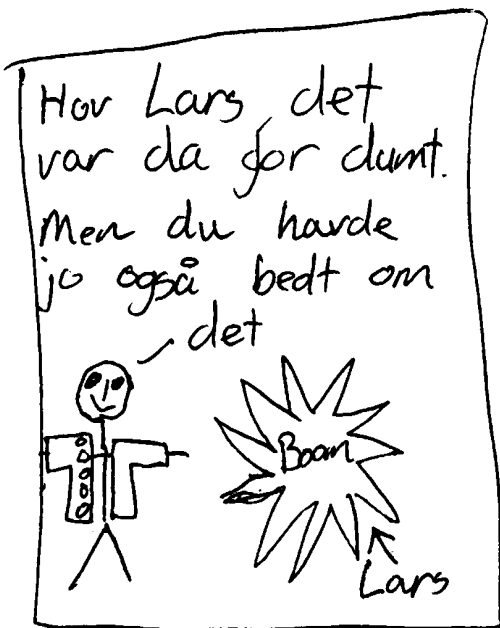 Hov Lars, det
var da for dumt.
Men du havde
jo også bedt om
det
Boom
Lars